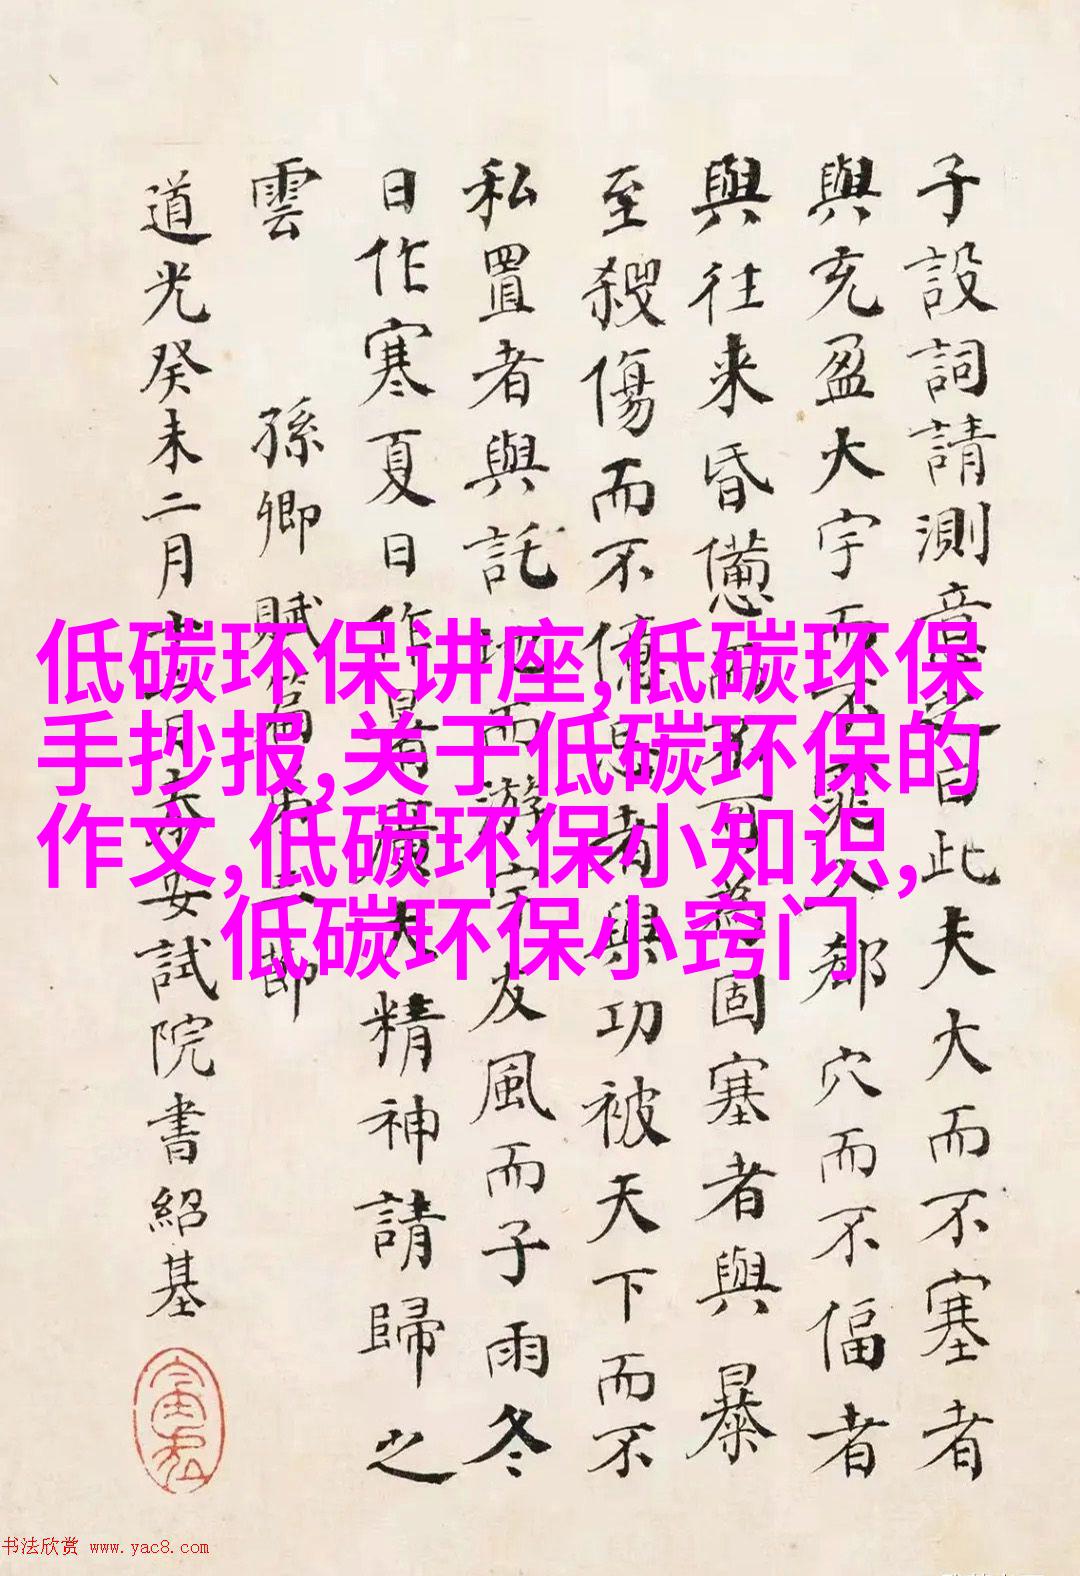 子設詞請測意之曰此夫大而不塞者
與充盈大宇而不窕入郄穴而不偪者
與往来昏憊而不可為固塞者與暴
至殺傷而不億忌者與功被天下而不
私置者與託地而游宇友風而子雨冬
日作寒夏日作暑廣大精神請歸之
雲 孫卿賦篇
道光癸未二月 試院書紹基
低碳环保讲座,低碳环保
手抄报,关于低碳环保的
作文,低碳环保小知识,
低碳环保小窍门
书法欣赏 www.yac8.com